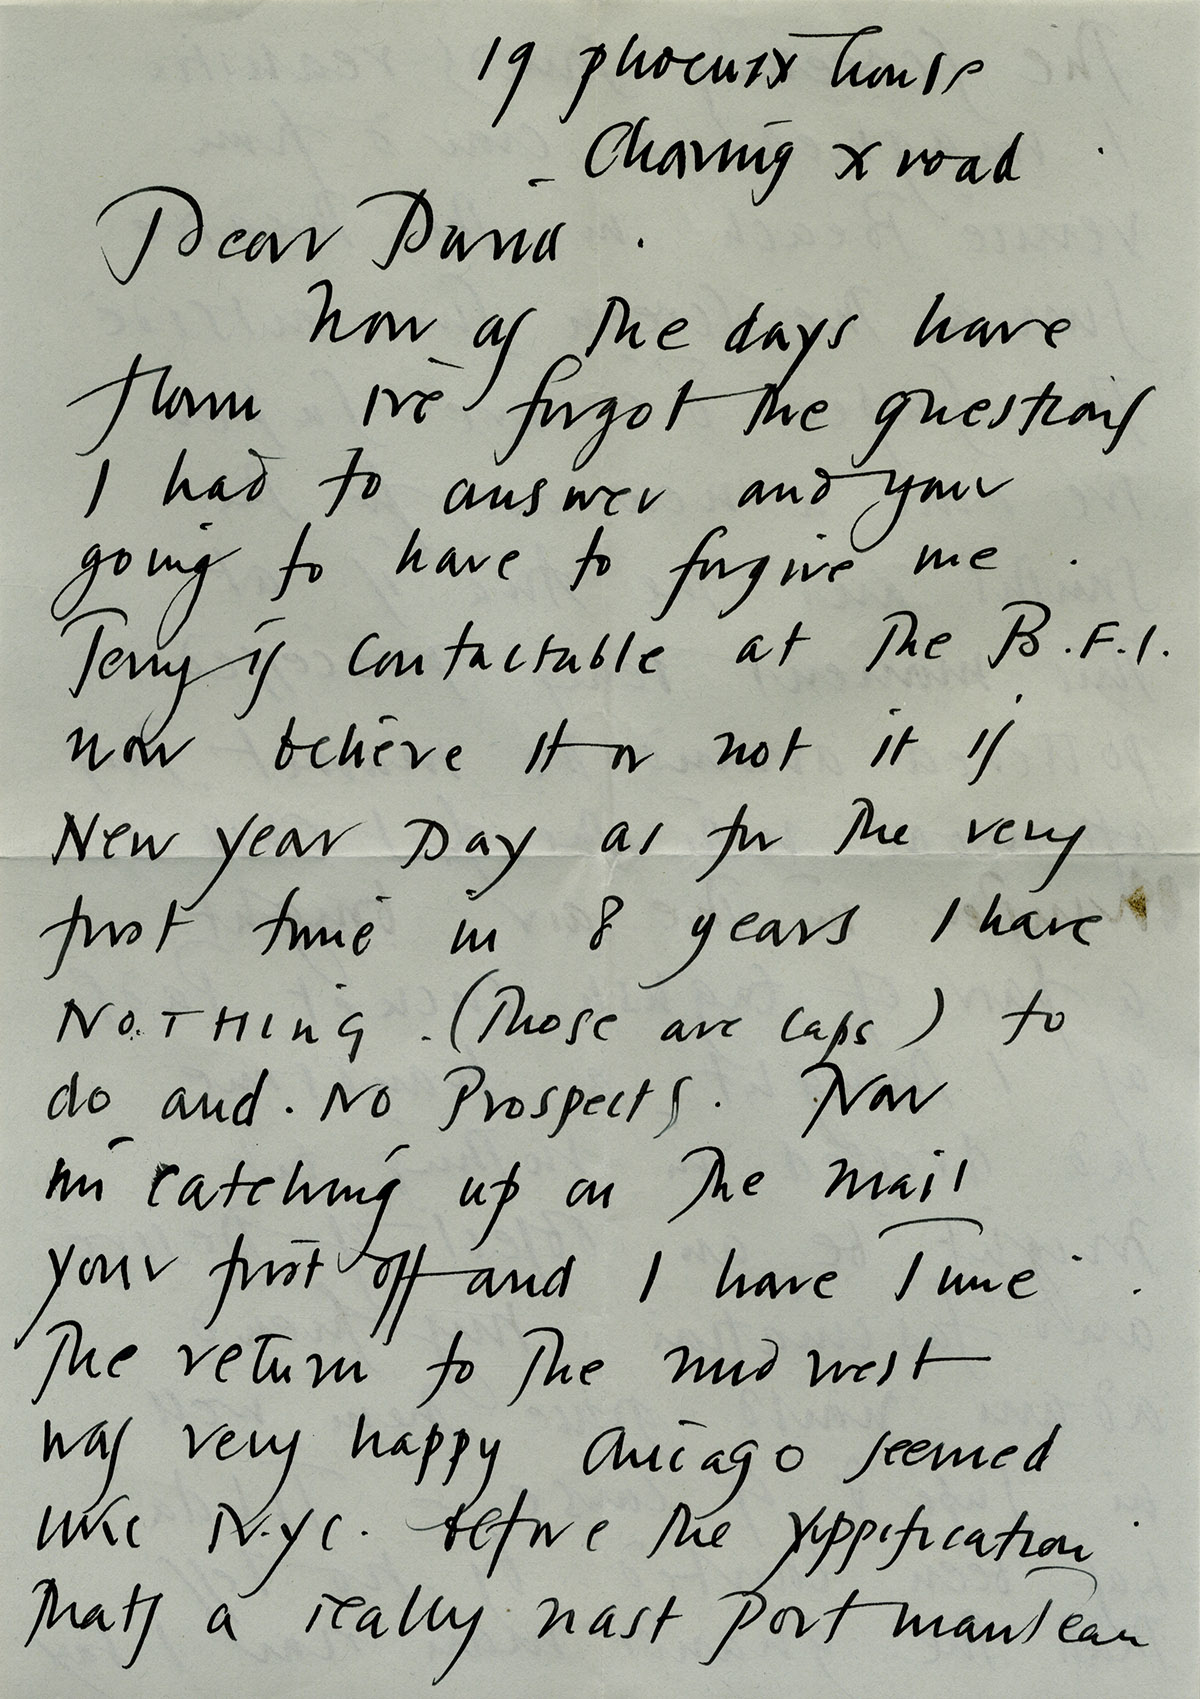 19 phoenix house
Charing x road
Dear David
how as the days have
flown ive forgot the questions
I had to answer and your
going to have to forgive me.
Terry is contactable at the B.F.I.
now believe it or not it is
New Year Day as for the very
first time in 8 years I have
NOTHING. (Those are caps) to
do and. No Prospects. Now
im catching up on the mail
your first off and I have Time.
The return to the mid west
was very happy Chicago seemed
like N.Y.C. before the yuppification
thats a really nast portmanteau